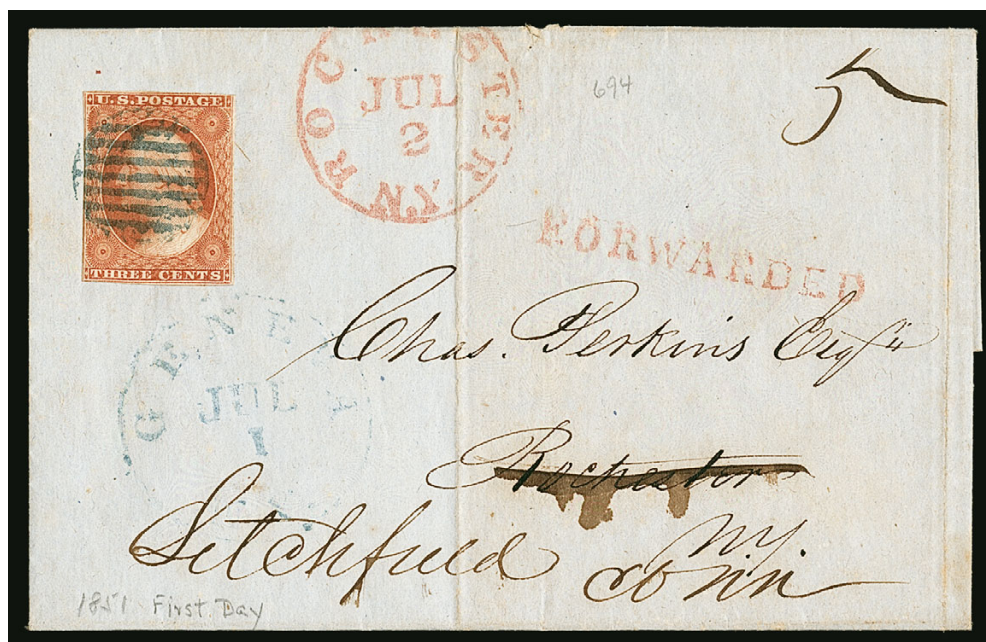 U.S. POSTAGE
THREE CENTS
ROCHESTER N.Y.
JUL
2
694
5
FORWARDED
GENEVA
JUL
1
Chas. Perkins Esqr
Rochester
NY
Litchfield Conn
1851 First Day